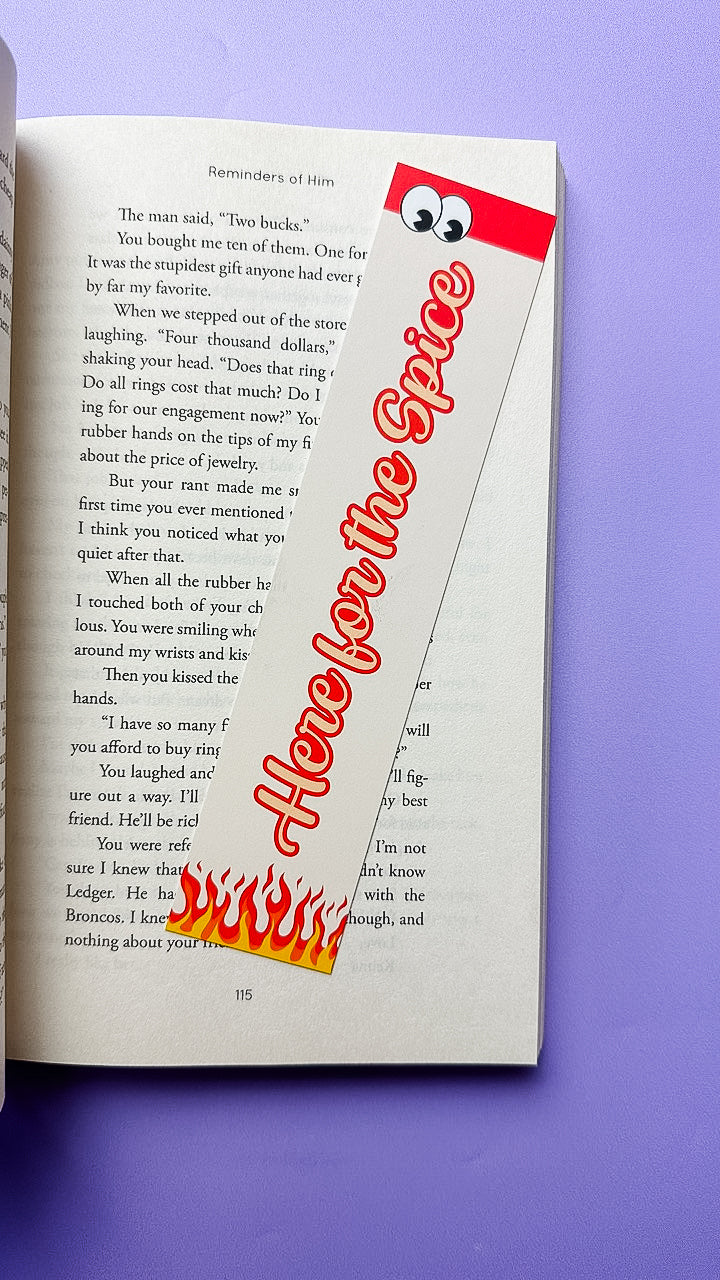 Reminders of Him
The man said, “Two bucks.”
You bought me ten of them. One for
It was the stupidest gift anyone had ever
by far my favorite.
When we stepped out of the store
laughing. “Four thousand dollars,”
shaking your head. “Does that ring
Do all rings cost that much? Do I
ing for our engagement now?” You
rubber hands on the tips of my
about the price of jewelry.
But your rant made me
first time you ever mentioned
I think you noticed what
quiet after that.
When all the rubber
I touched both of your
lous. You were smiling
around my wrists and
Then you kissed the
hands.
“I have so many will
you afford to buy
You laughed and fig-
ure out a way. I’ll my best
friend. He’ll be
You were I’m not
sure I knew that know
Ledger. He with the
Broncos. I though, and
nothing about your
115
Here for the Spice